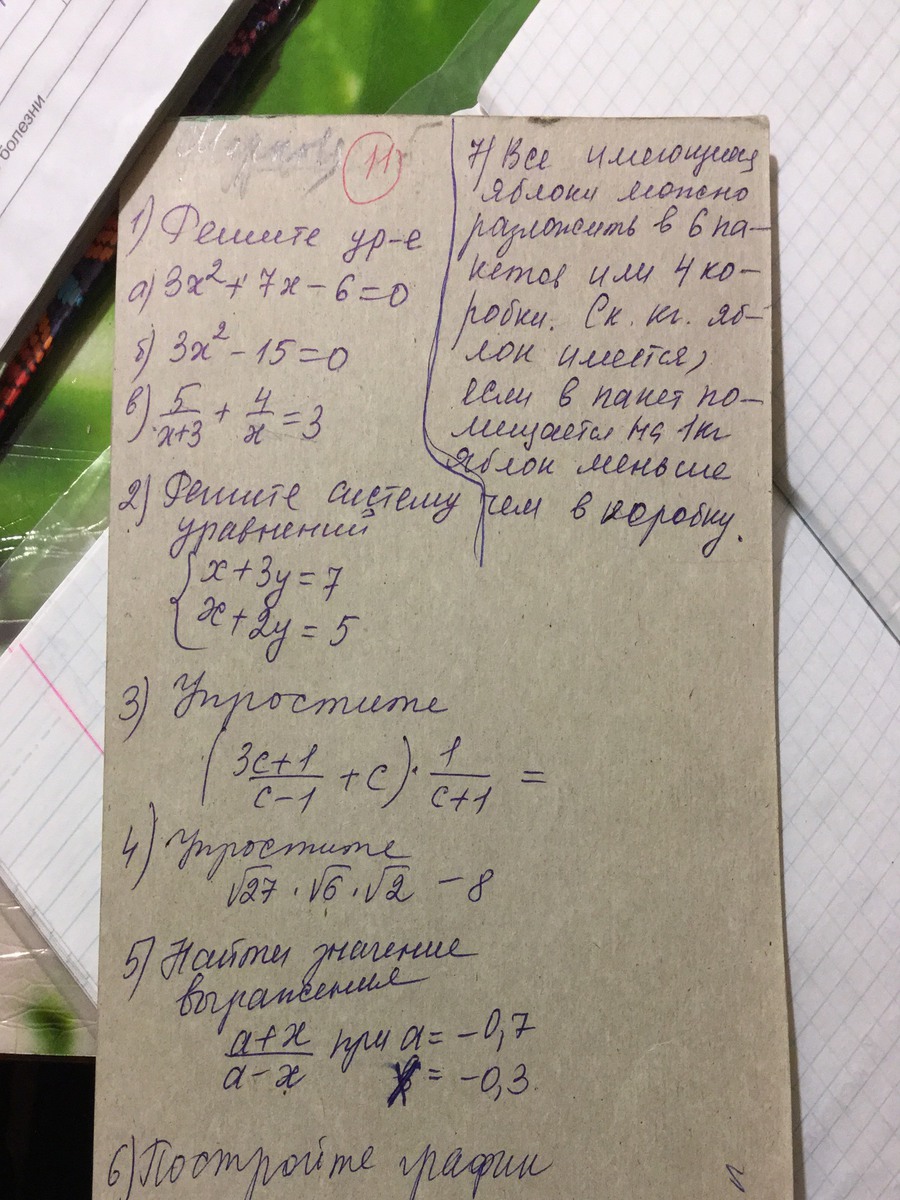 болезни
11
1) Решите ур-е
а) 3x² + 7x - 6 = 0
б) 3x² - 15 = 0
в) 5/(x+3) + 4/x = 3
2) Решите систему
уравнений
{ x + 3y = 7
x + 2y = 5
3) Упростите
( (3c+1)/(c-1) + c ) · 1/(c+1) =
4) Упростите
√27 · √6 · √2 - 8
5) Найти значение
выражения
(a+x)/(a-x) при a = -0,7
x = -0,3.
6) Постройте график
7) Все имеющиеся
яблоки можно
разложить в 6 па-
кетов или 4 ко-
робки. Ск. кг. яб-
лок имется,
если в пакет по-
мещается на 1кг
яблок меньше
чем в коробку.